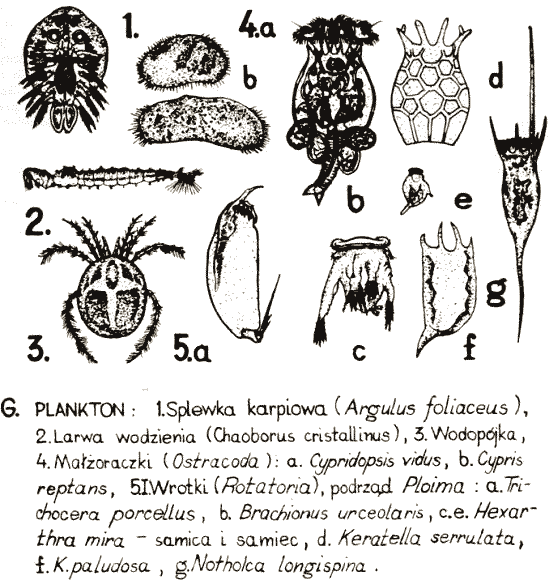 1.
4.a
b
d
2.
b
e
3.
5.a
c
f
g
G. PLANKTON: 1.Splewka karpiowa (Argulus foliaceus),
2.Larwa wodzienia (Chaoborus cristallinus), 3.Wodopójka,
4.Małżoraczki (Ostracoda): a. Cypridopsis vidus, b. Cypris
reptans, 5.Wrotki (Rotatoria), podrząd Ploima: a.Tri-
chocera porcellus, b. Brachionus urceolaris, c.e. Hexar-
thra mira - samica i samiec, d. Keratella serrulata,
f. K.paludosa, g.Notholca longispina.